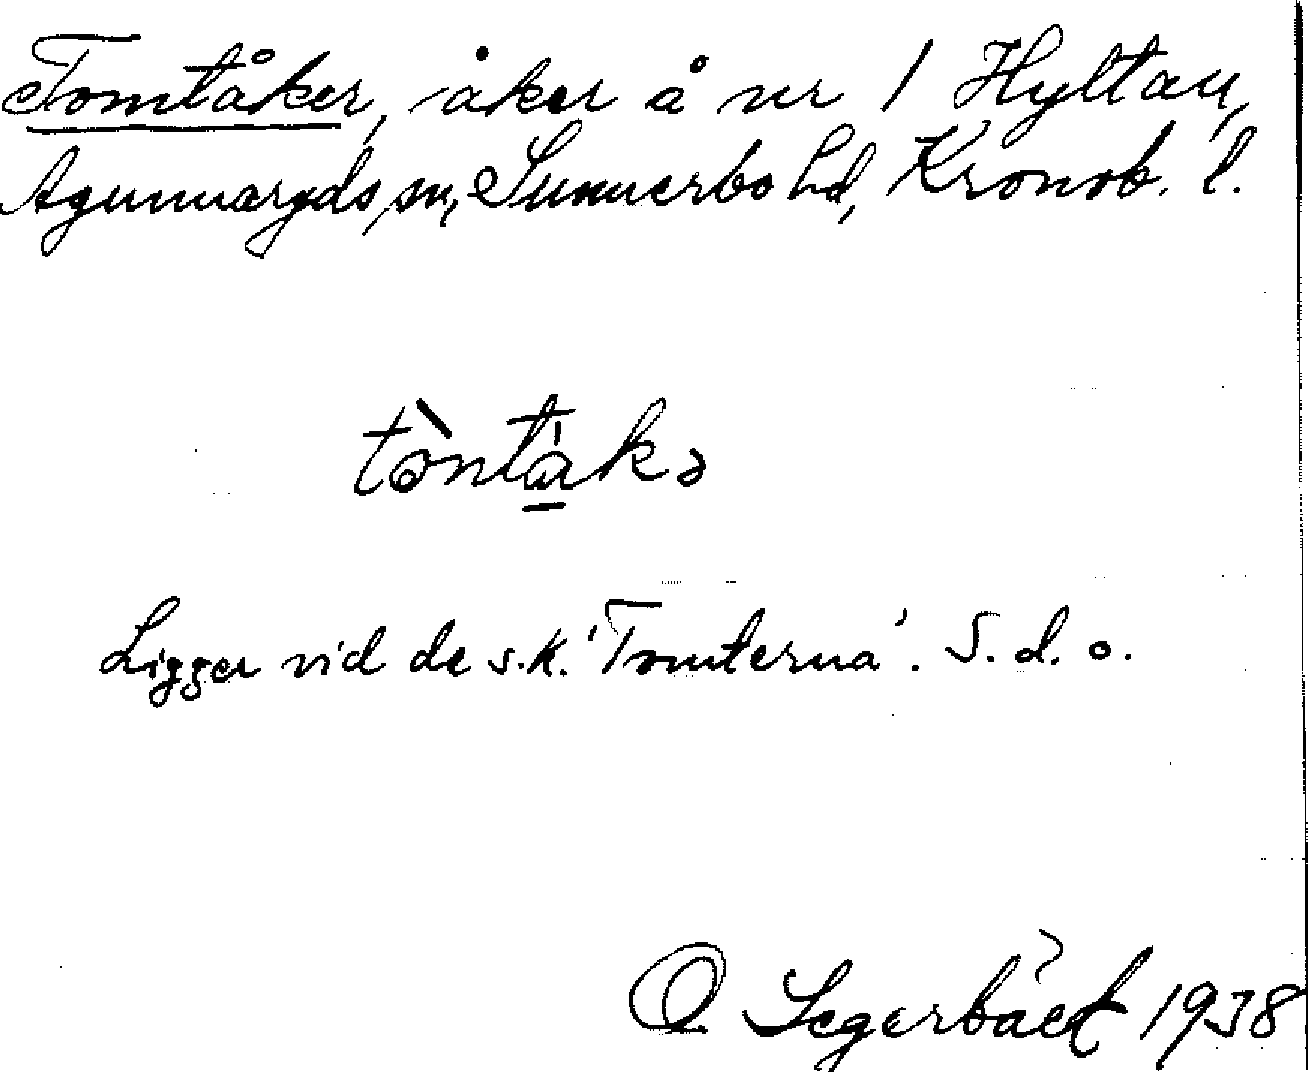 Tomtåker, åker å nr 1 Hyltan,
Agunnaryds sn, Sunnerbo hd, Kronob. l.
tòntàkə
Ligger vid de s.k. 'Tomterna'. S. d. o.
O Segerbäck 1938